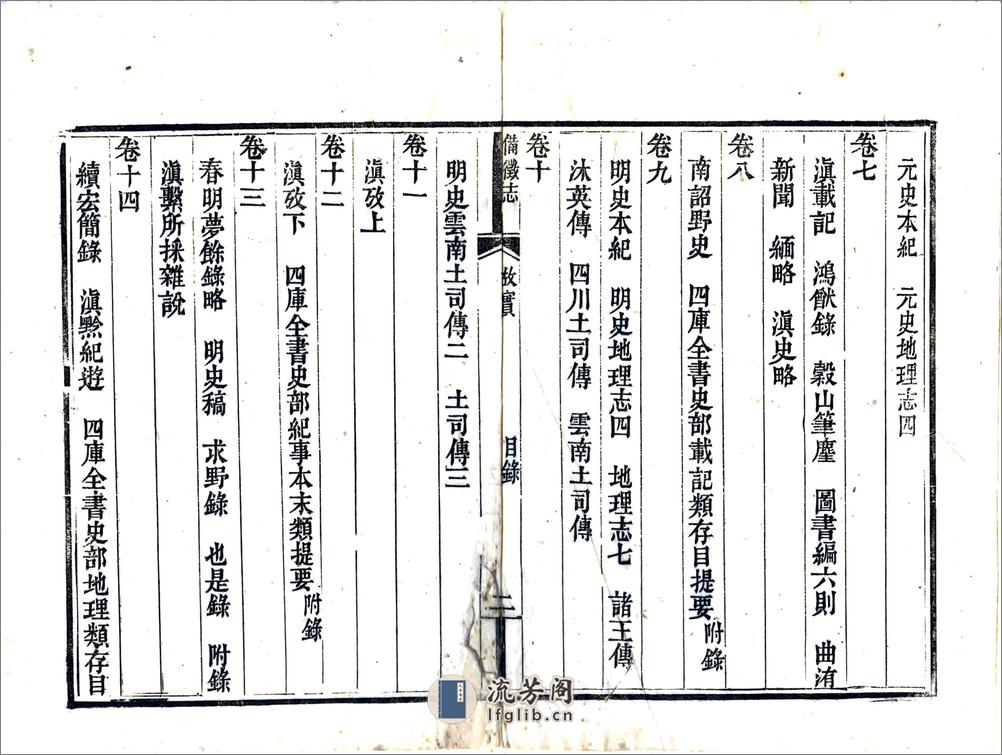 元史本紀　元史地理志四
卷七
滇載記　鴻猷錄　穀山筆麈　圖書編六則　曲洧
新聞　緬略　滇史略
卷八
南詔野史　四庫全書史部載記類存目提要附錄
卷九
明史本紀　明史地理志四　地理志七　諸王傳
沐英傳　四川土司傳　雲南土司傳
卷十
備徵志　故實　目錄　二
明史雲南土司傳二　土司傳三
卷十一
滇攷上
卷十二
滇攷下　四庫全書史部紀事本末類提要附錄
卷十三
春明夢餘錄略　明史稿　求野錄　也是錄　附錄
滇繫所採雜說
卷十四
續宏簡錄　滇黔紀遊　四庫全書史部地理類存目
流芳阁
lfglib.cn